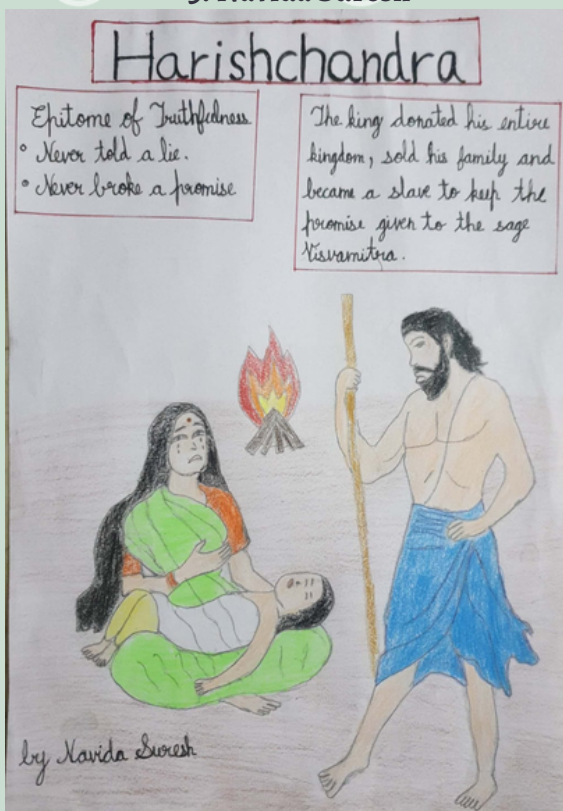 Harishchandra
Epitome of Truthfulness
• Never told a lie.
• Never broke a promise
The king donated his entire
kingdom, sold his family and
became a slave to keep the
promise given to the sage
Visvamitra.
by Navida Suresh